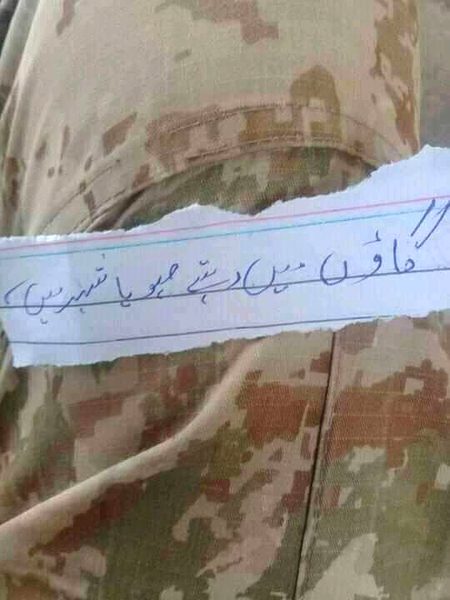 "گاؤں میں رہتے ہو یا شہر میں،